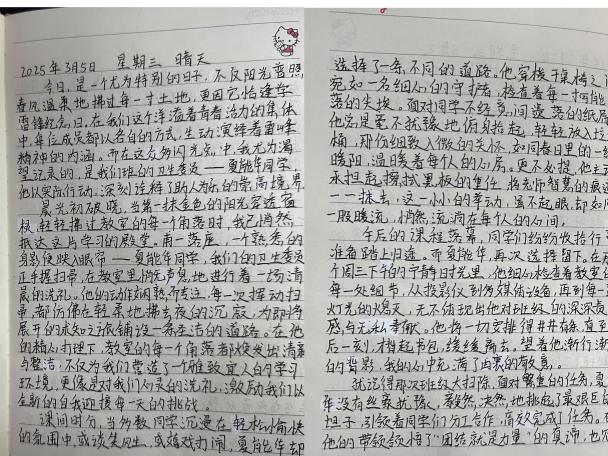 2025年3月5日 星期三 晴天
今日,是一个尤为特别的日子,不仅阳光普照,
春风温柔地拂过每一寸土地,更因它恰逢学
雷锋纪念日,在我们这个洋溢着青春活力的集体
中,每位成员都以各自的方式,生动演绎着雷锋
精神的内涵。而在这众多闪光点中,我尤为渴
望记录的,是我们班的卫生委员——夏能华同学,
他以实际行动,深刻诠释了助人为乐的崇高境界
晨光初破晓,当第一抹金色的阳光穿透窗
棂,轻轻拂过教室的每一个角落时,我已悄然
抵达这片学习的殿堂。甫一落座,一个熟悉的
身影便映入眼帘——夏能华同学,我们的卫生委员
正手握扫帚,在教室里悄无声息地进行着一场清
晨的洗礼。他的动作娴熟而专注,每一次挥动扫
帚,都仿佛在轻柔地拂去夜的沉寂,为即将
展开的求知之旅铺设一条洁净的道路。在他
的精心打理下,教室的每一个角落都焕发出清新
与整洁,不仅为我们营造了一个雅致宜人的学习
环境,更像是对我们心灵的洗礼,激励我们以
全新的自我迎接每一天的挑战。
课间时分,当多数同学沉浸在轻松愉快
的氛围中,或谈笑风生,或嬉戏打闹,夏能华却
选择了一条不同的道路。他穿梭于桌椅之
宛如一名细心的守护者,检查着每一寸可能
落的尘埃。面对同学不经意间遗落的纸屑
他总是毫不犹豫地俯身拾起,轻轻放入垃
桶,那份细致入微的关怀,如同春日里的一
暖阳,温暖着每个人的心房。更不必提,他主
承担起擦拭黑板的重任,将老师智慧的痕
一一抹去,这一小小的举动,虽不起眼,却如
一股暖流,悄然流淌在每个人的心间。
午后的课程落幕,同学们纷纷收拾行
准备踏上归途。而夏能华,再次选择留下。在
个周三下午的宁静时光里,他细心检查着教室
每一处细节,从投影仪到多媒体设备,再到每一
灯光的熄灭,无不体现出他对班级的深深责
感与无私奉献。他将一切安排得井井有条,直至
后一刻,才背起书包,缓缓离去。望着他渐行渐
的背影,我的心中充满了由衷的敬意。
就说得那次班级大扫除,面对繁重的任务,夏
华没有丝毫犹豫,毅然决然地挑起了最艰巨
担子,引领着同学们分工合作,高效完成了任务。
他的带领领悟了“团结就是力量”的真谛,也